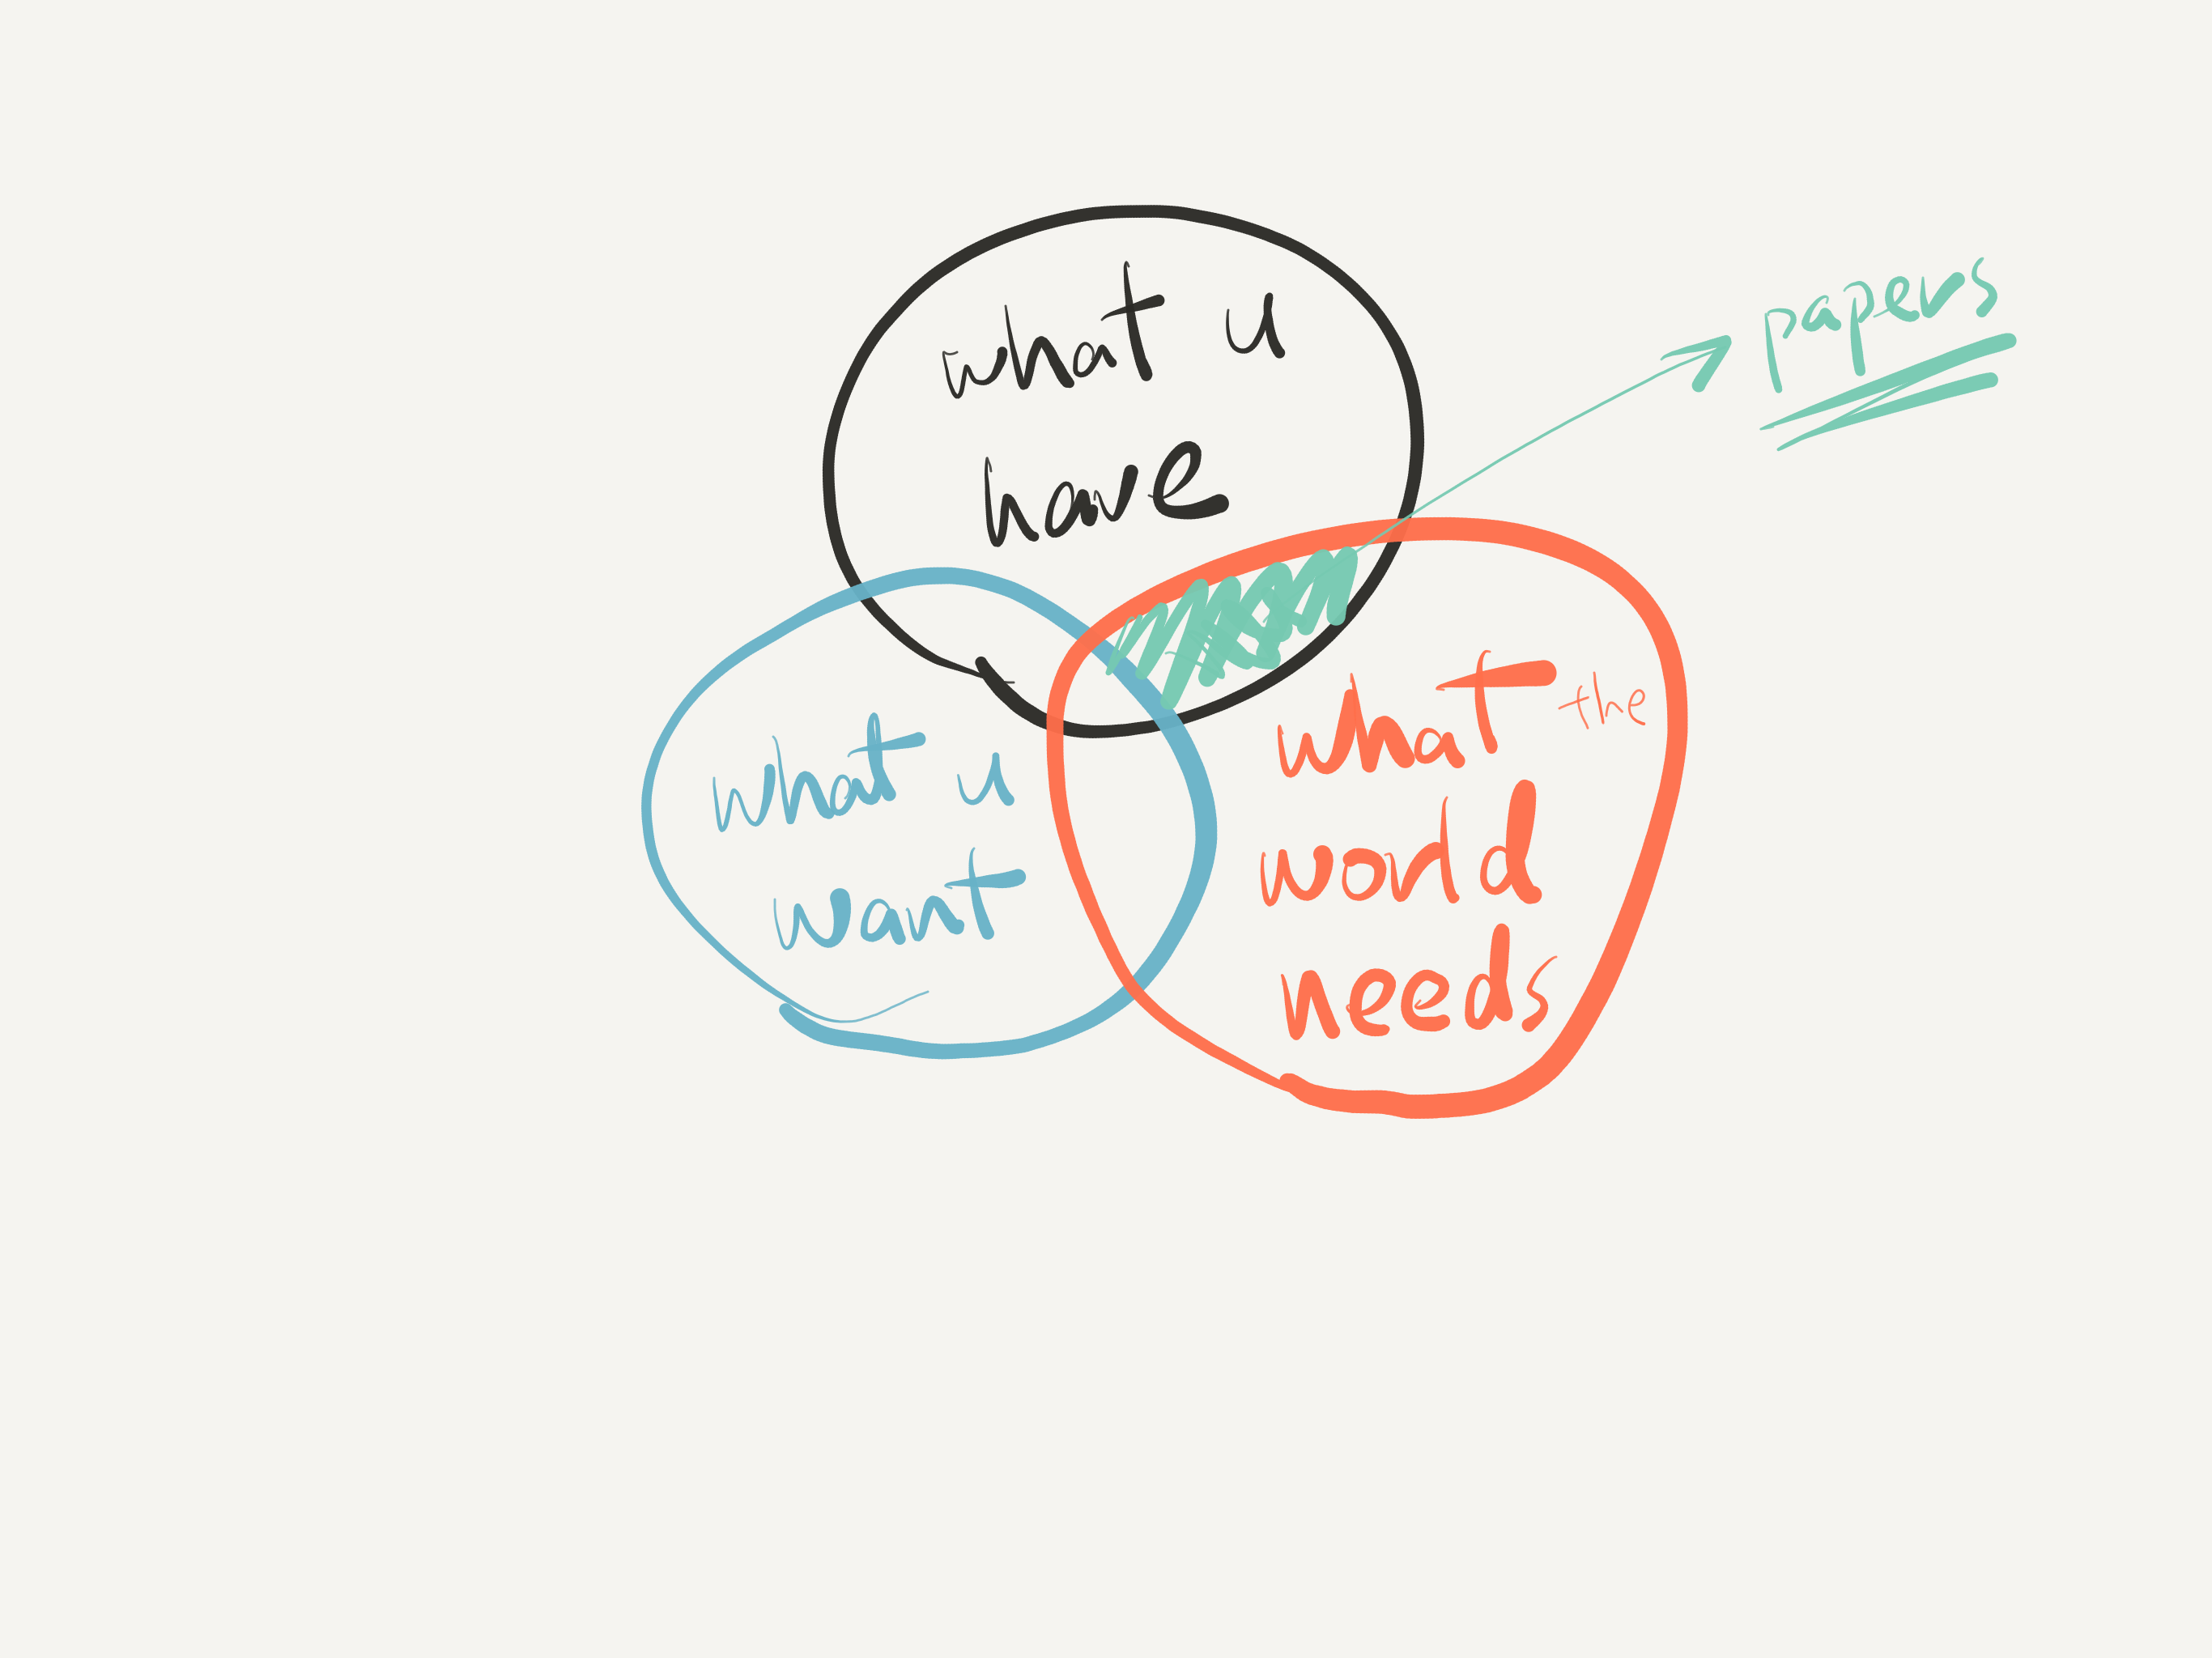 what u
have
papers
what u
want
what the
world
needs